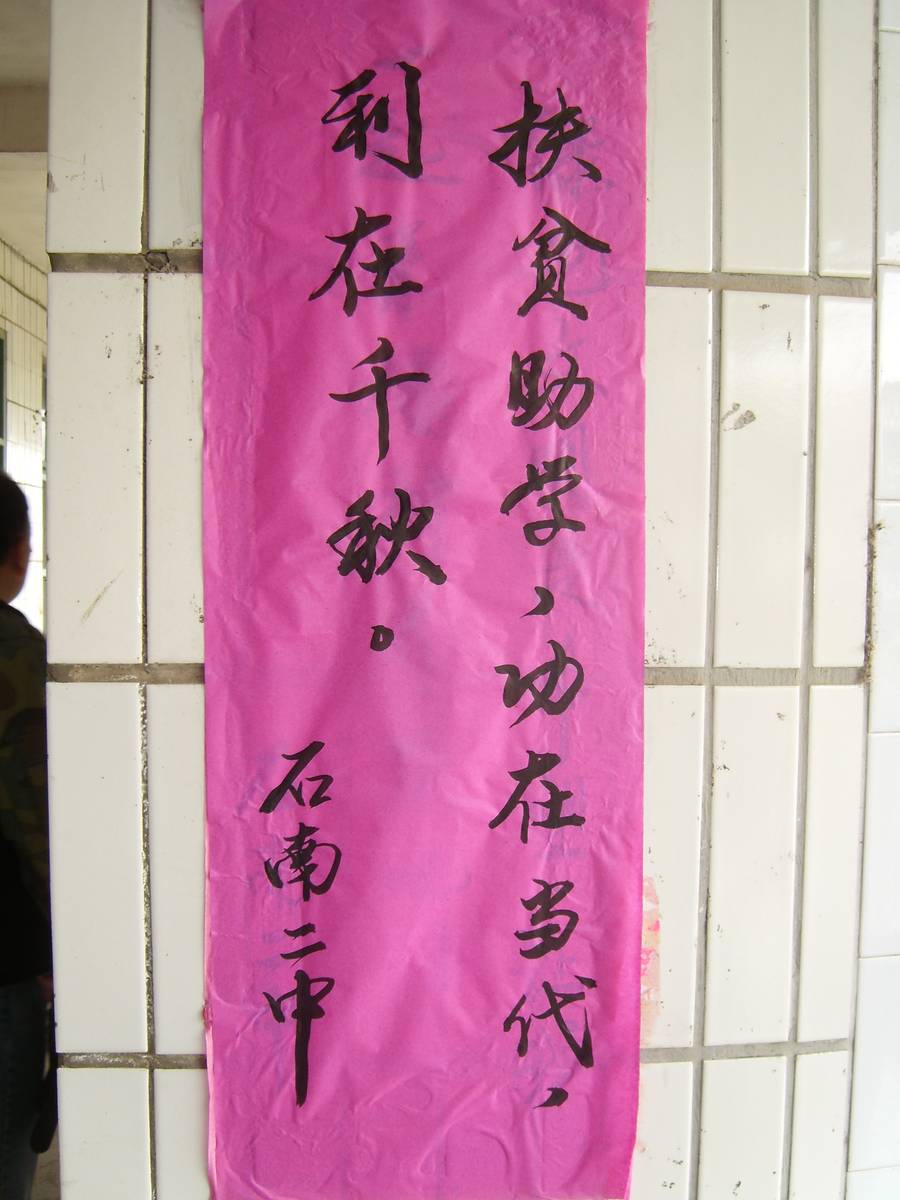 扶贫助学,功在当代,
利在千秋。
石南二中